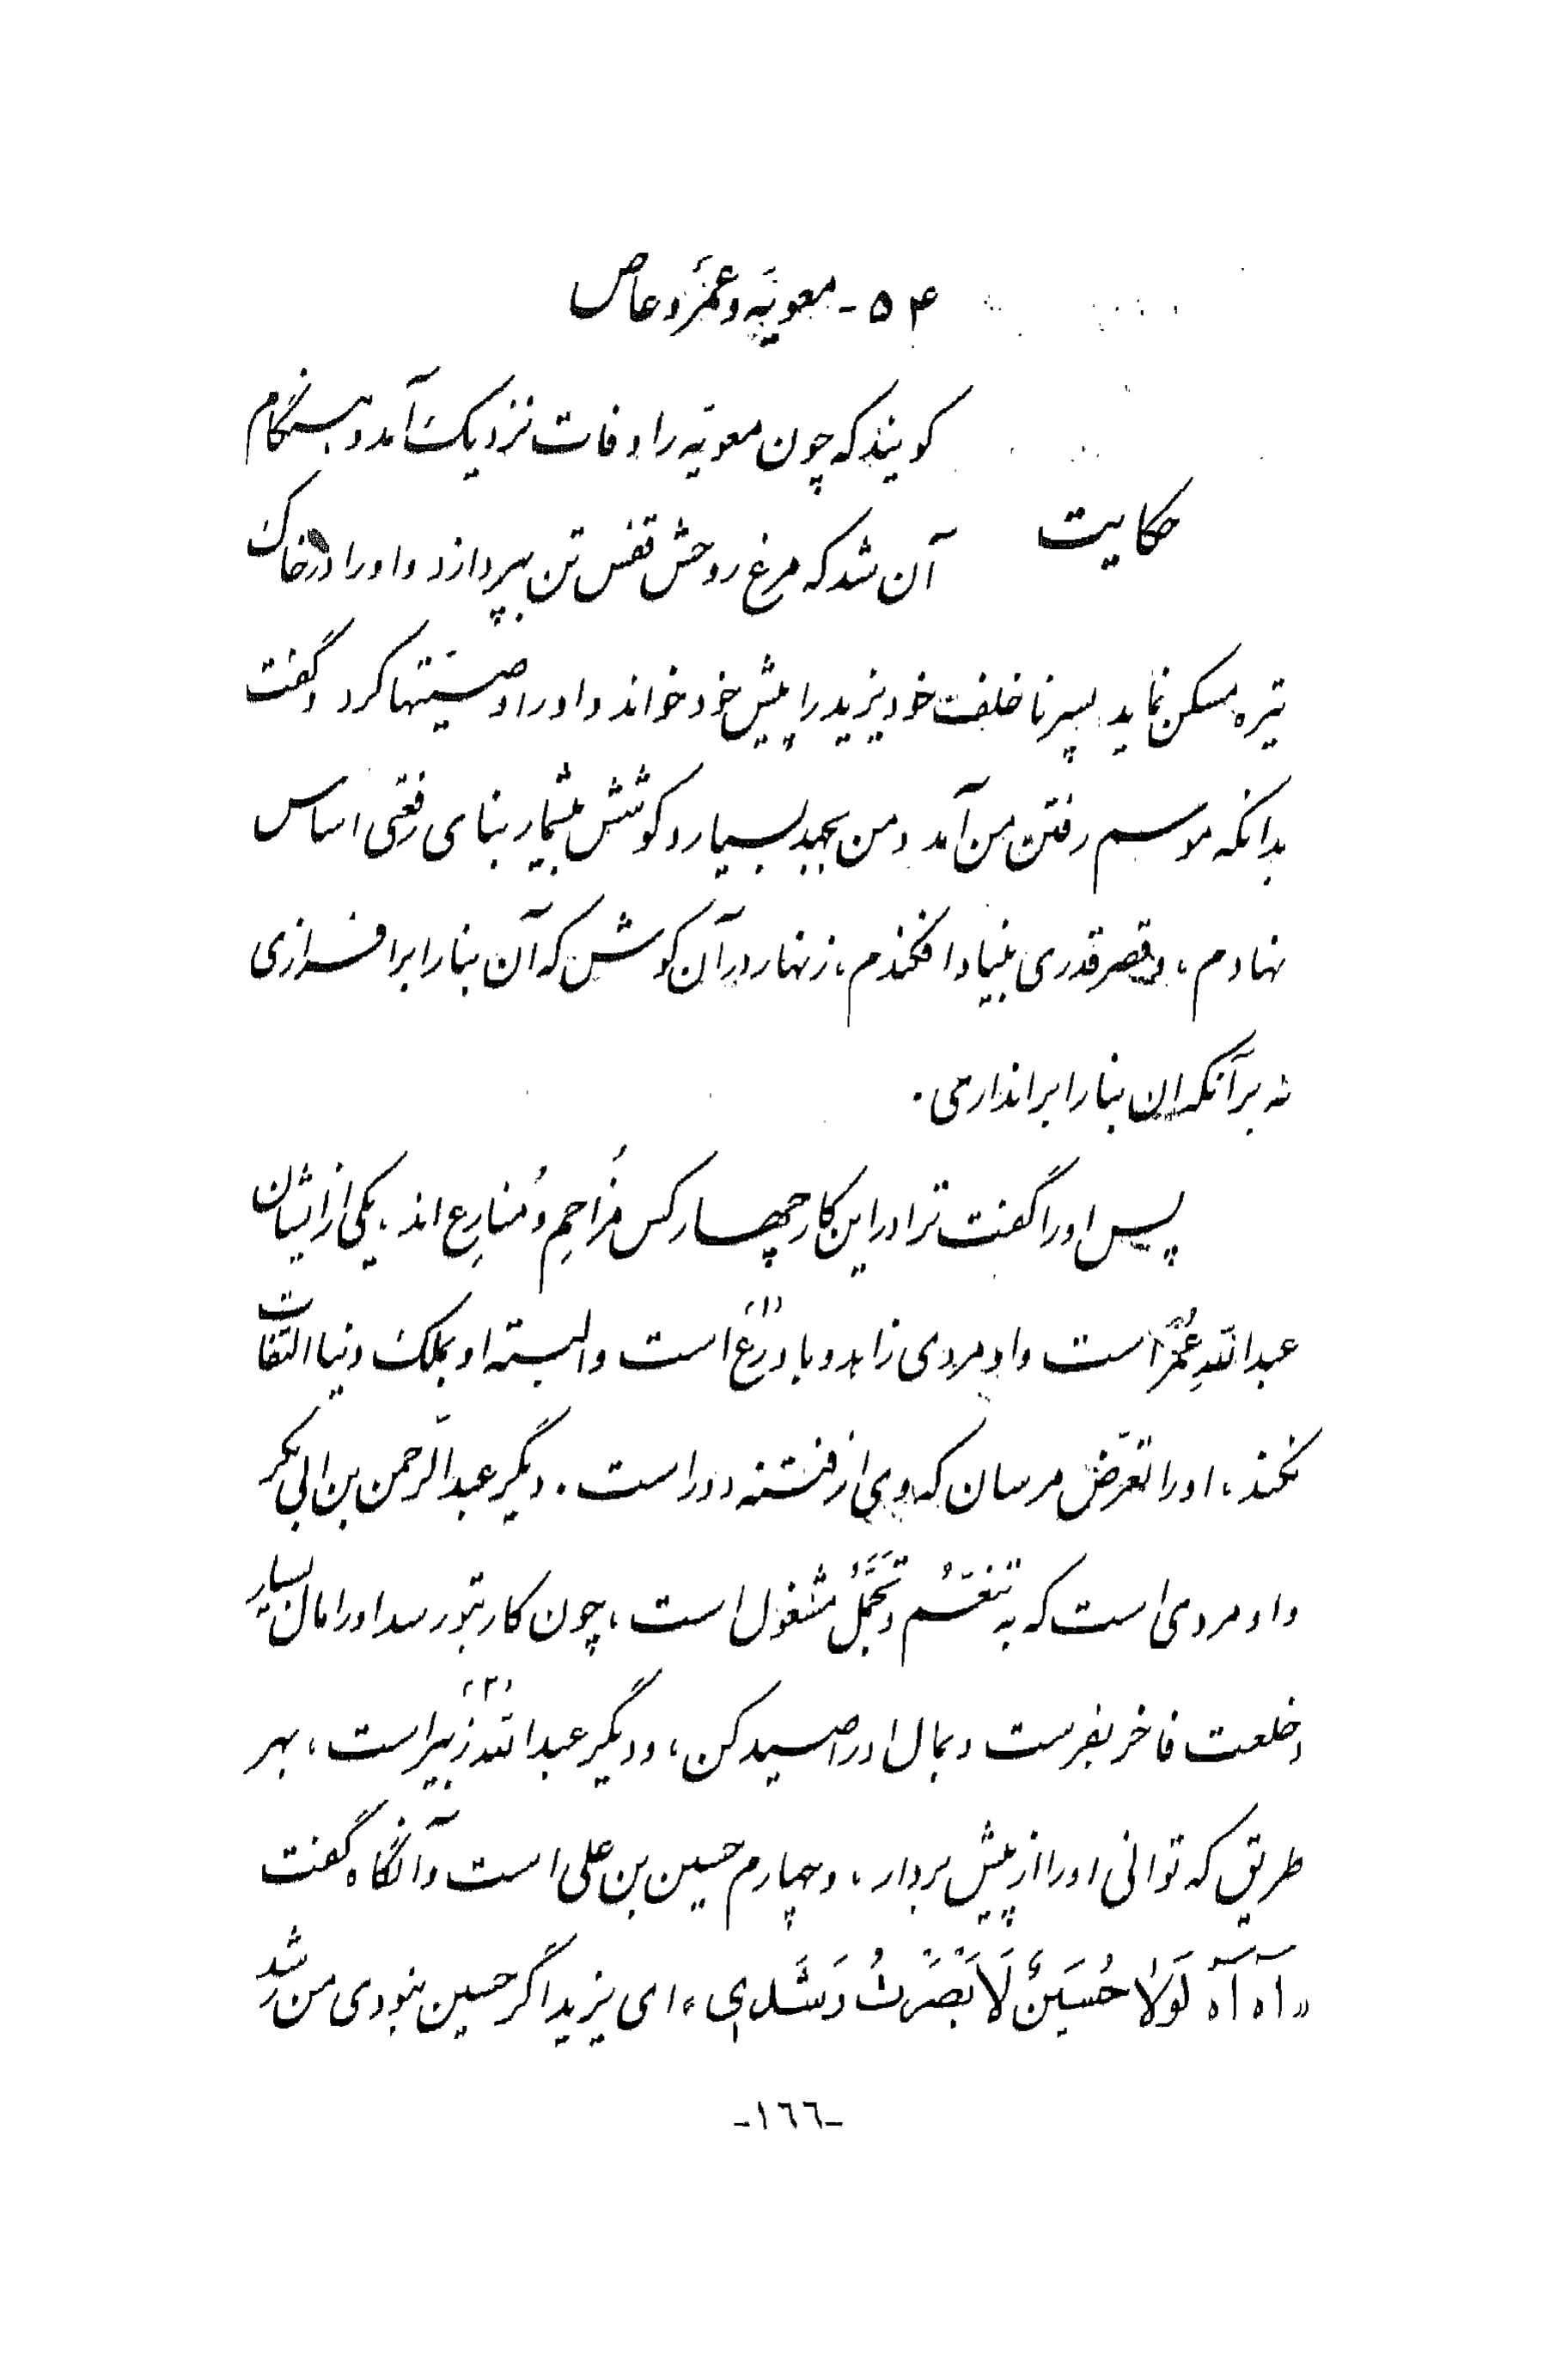 ۵۴ - معویَه و عَمْرَو عاص
گویند که چون معویّه را وفات نزدیک آمد و هنگام
حکایت
آن شد که مرغ روحش قفس تن بپردازد و او را در خاک
تیره مسکن نماید پسر ناخلف خود یزید را پیش خود خواند و او را وصیّتها کرد و گفت
بدانکه موسم رفتن من آمد و من بجهد بسیار و کوشش بیشمار بنای رفعتی اساس
نهادم، و قصر قدری بنیاد افکندم، زنهار در آن کوش که آن بنا را برافرازی
نه بر آنکه ان بنا را براندازی.
پس او را گفت ترا در این کار چهار کس مُزاحِم و مُنازِع اند، یکی از ایشان
عبداللّهِ عُمَر است و او مردی زاهد و با وَرَع (۱) است و البته او بملک دنیا التفات
نکند، او را تعرّض مرسان که وی از فتنه دور است. دیگر عبدالرّحمن بن ابی بکر
و او مردی است که به تَنَعُّم و تَجَمُّل مشغول است، چون کار بتو رسد او را مال بسیار
و خلعت فاخر بفرست و بمال او را صید کن، و دیگر عبداللّه زُبیر (۲) است، بهر
طریق که توانی او را از پیش بردار، و چهارم حسین بن علی است و آنگاه گفت
«آه آه لَوْلاٰ حُسَیْنٌ لَاَبْصَرْتُ رَشَدی» ای یزید اگر حسین نبودی من رشد
-١٦٦-